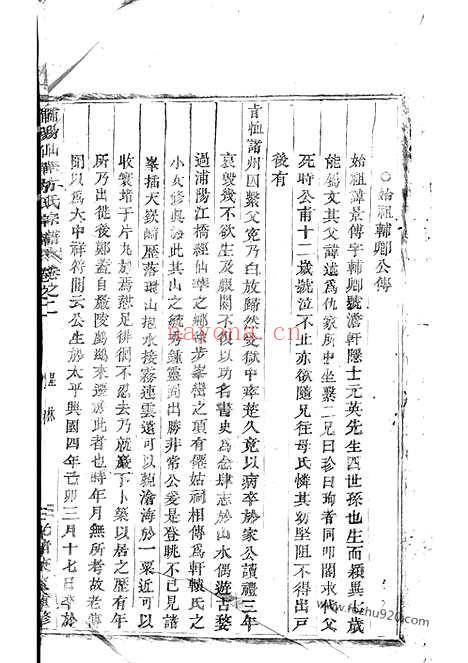 ○始祖輔卿公傳
始祖諱景傳字輔卿號澹軒隱士元英先生四世孫也生而穎異七歲
能屬文其父諱遠爲仇家所中坐繫二兄曰珍曰珣者同叩闕求代父
死時公甫十二歲號泣不止亦欲隨兄往母氏憐其幼堅阻不得出戶
後有
旨恤諸州囚繫父免乃白放歸然受獄中痺楚久竟以病卒於家公讀禮三年
哀毀幾不欲生及服闋不復以功名書史爲念肆志於山水偶遊古婺
過浦陽江橋經仙華之鄉緣步峯巒之項有僊姑祠相傳爲軒轅氏之
小女修與於此其山之純秀鍾靈迥出勝非常公愛是登眺不已見諸
峯插天嶽崎歷落環山抱水接霧連雲遠可以貌滄海於一粟近可以
收寰培于片丸於焉棲足徘徊不忍去乃就巖下卜築以居之歷有年
所乃出從後鄭蓋自嚴陵鸕鶿來遷於此者也時年月無所考故老傳
聞以爲大中祥符間云公生於太平興國四年己卯三月十七日卒於
浦陽仙華方氏宗譜 卷之二